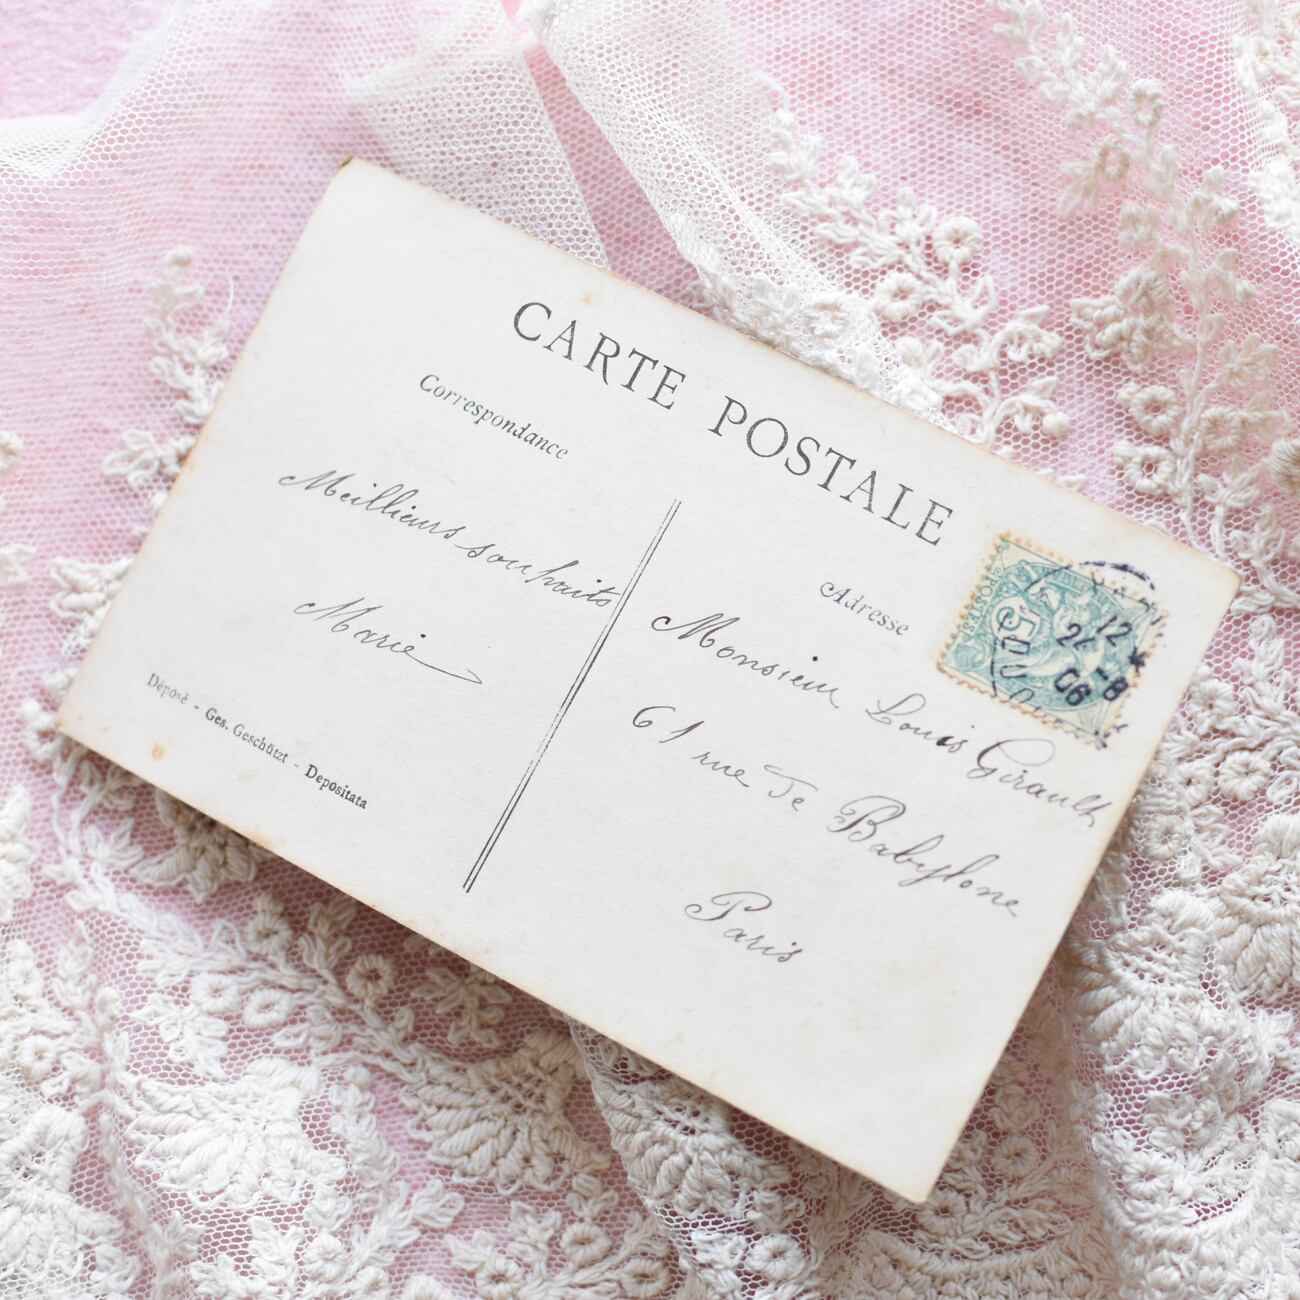 CARTE POSTALE
Correspondance
Meillieurs souhaits
Marie
Déposé - Ges. Geschützt - Depositata
Adresse
Monsieur Louis Girault
61 rue de Babylone
Paris
POSTES
5
12
24 -8
06